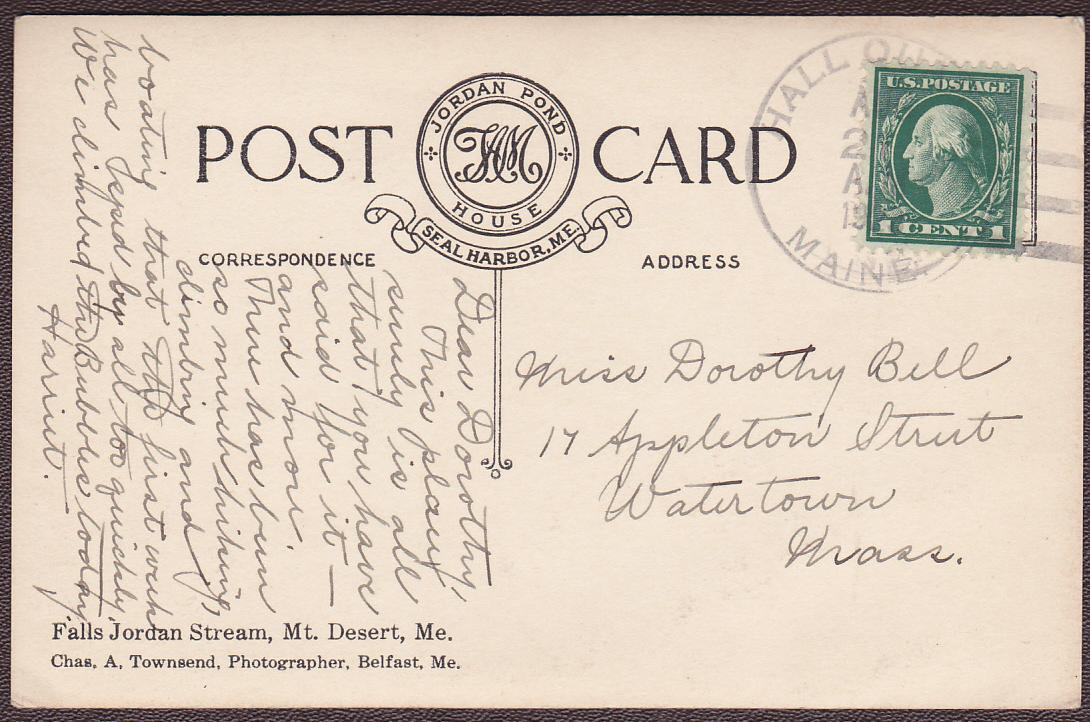 POST CARD
JORDAN POND
HOUSE
SEAL HARBOR, ME.
HALL QU
MAINE
U.S. POSTAGE
1 CENT 1
CORRESPONDENCE
ADDRESS
Dear Dorothy,
This place
surely is all
that you have
said for it —
and more.
There has been
so much hiking,
climbing and
boating that the first week
has sped by all too quickly.
We climbed the Bubbles today.
Harriet.
Miss Dorothy Bell
17 Appleton Street
Watertown
Mass.
Falls Jordan Stream, Mt. Desert, Me.
Chas. A. Townsend, Photographer, Belfast, Me.